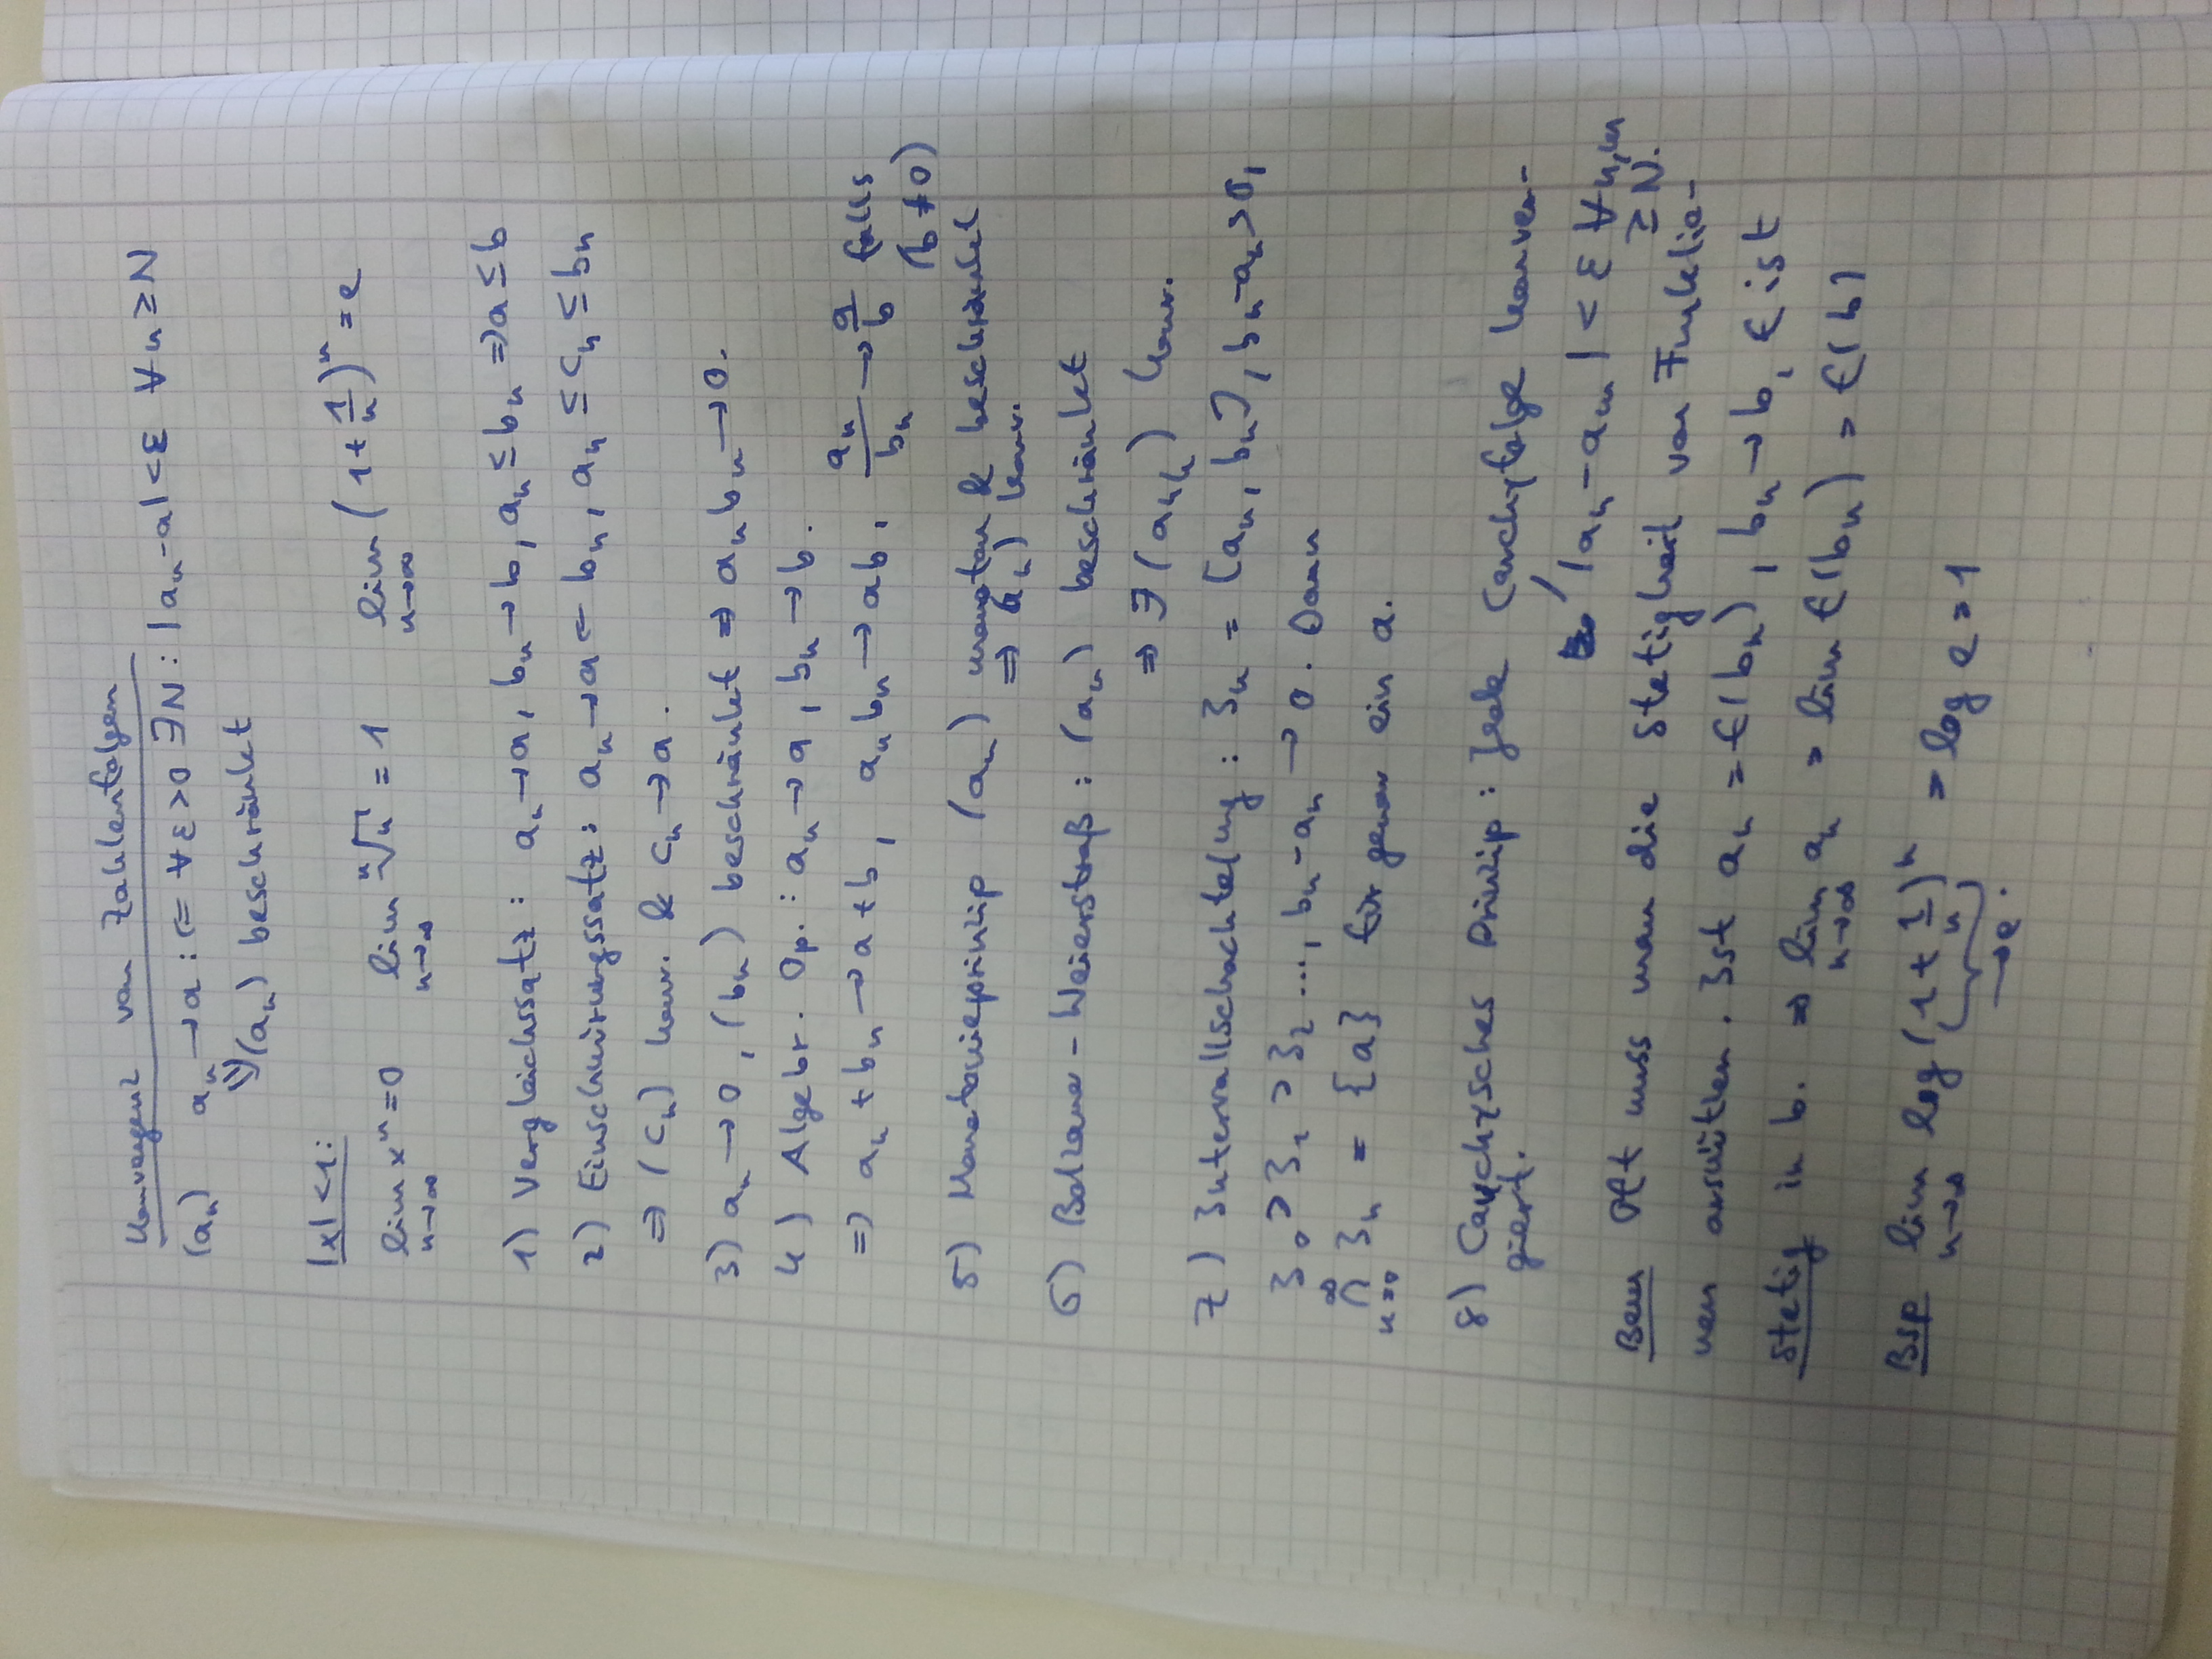 Konvergenz von Zahlenfolgen
(aₙ) aₙ → a :⇔ ∀ ε > 0 ∃ N : |aₙ - a| < ε ∀ n ≥ N
⇓ (aₙ) beschränkt
|x| < 1:
lim n→∞ xⁿ = 0 lim n→∞ ⁿ√n = 1 lim n→∞ (1 + 1/n)ⁿ = e
1) Vergleichssatz: aₙ → a, bₙ → b, aₙ ≤ bₙ ⇒ a ≤ b
2) Einschnürungssatz: aₙ → a ← bₙ, aₙ ≤ cₙ ≤ bₙ
⇒ (cₙ) konv. & cₙ → a.
3) aₙ → 0, (bₙ) beschränkt ⇒ aₙ bₙ → 0.
4) Algebr. Op.: aₙ → a, bₙ → b.
⇒ aₙ + bₙ → a + b, aₙ bₙ → ab, aₙ/bₙ → a/b falls (b ≠ 0)
5) Monotonieprinzip (aₙ) monoton & beschränkt
⇒ (aₙ) konv.
6) Bolzano-Weierstraß: (aₙ) beschränkt
⇒ ∃ (aₙₖ) konv.
7) Intervallschachtelung: Iₙ = [aₙ, bₙ], bₙ - aₙ > 0,
I₀ ⊃ I₁ ⊃ I₂ ..., bₙ - aₙ → 0. Dann
∞ ⋂ n=0 Iₙ = {a} für genau ein a.
8) Cauchysches Prinzip: Jede Cauchyfolge konver-
giert. |aₙ - aₘ| < ε ∀ n,m ≥ N.
Bem Oft muss man die Stetigkeit von Funktio-
nen ausnützen. Ist aₙ = f(bₙ), bₙ → b, f ist
stetig in b. ⇒ lim n→∞ aₙ = lim f(bₙ) = f(b)
Bsp lim n→∞ log (1 + 1/n)ⁿ = log e = 1
→ e.